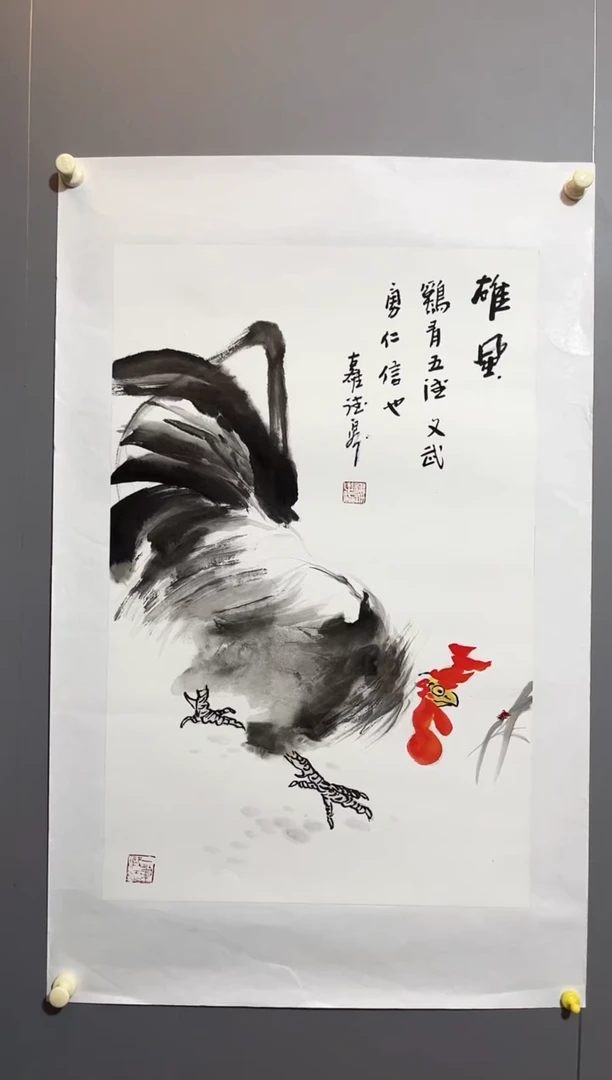 雄風
鷄有五德文武
勇仁信也